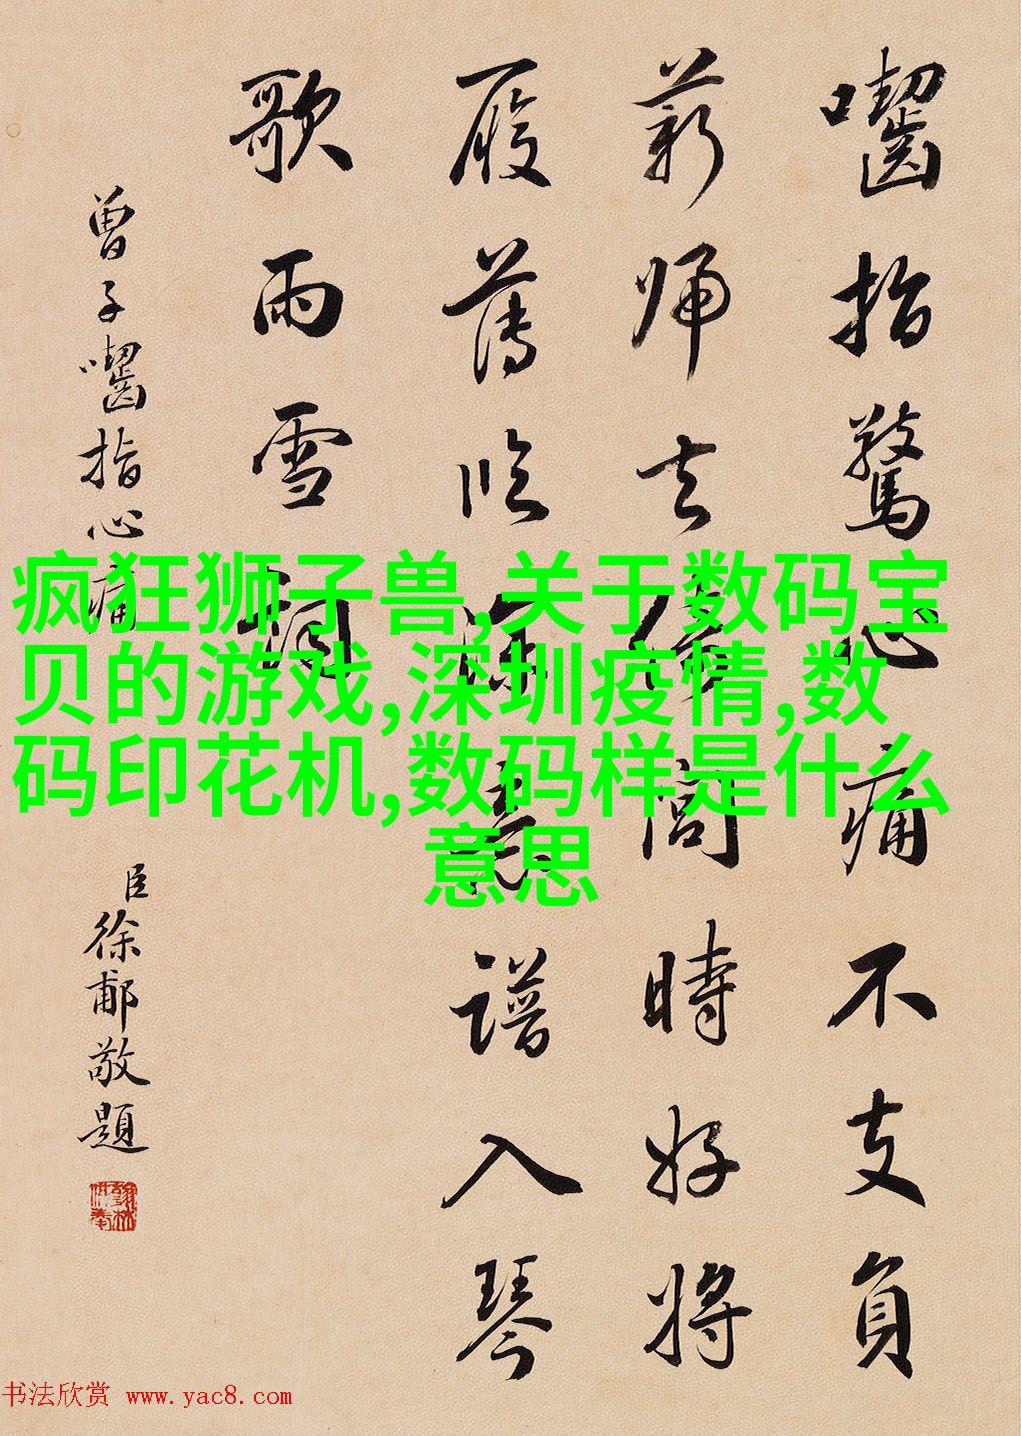 囓指驚心痛不支負
薪歸去問時好將
履薄臨深意譜入琴
歌雨雪詞
曾子囓指心痛
臣徐郙敬題
疯狂狮子兽,关于数码宝
贝的游戏,深圳疫情,数
码印花机,数码样是什么
意思
书法欣赏 www.yac8.com